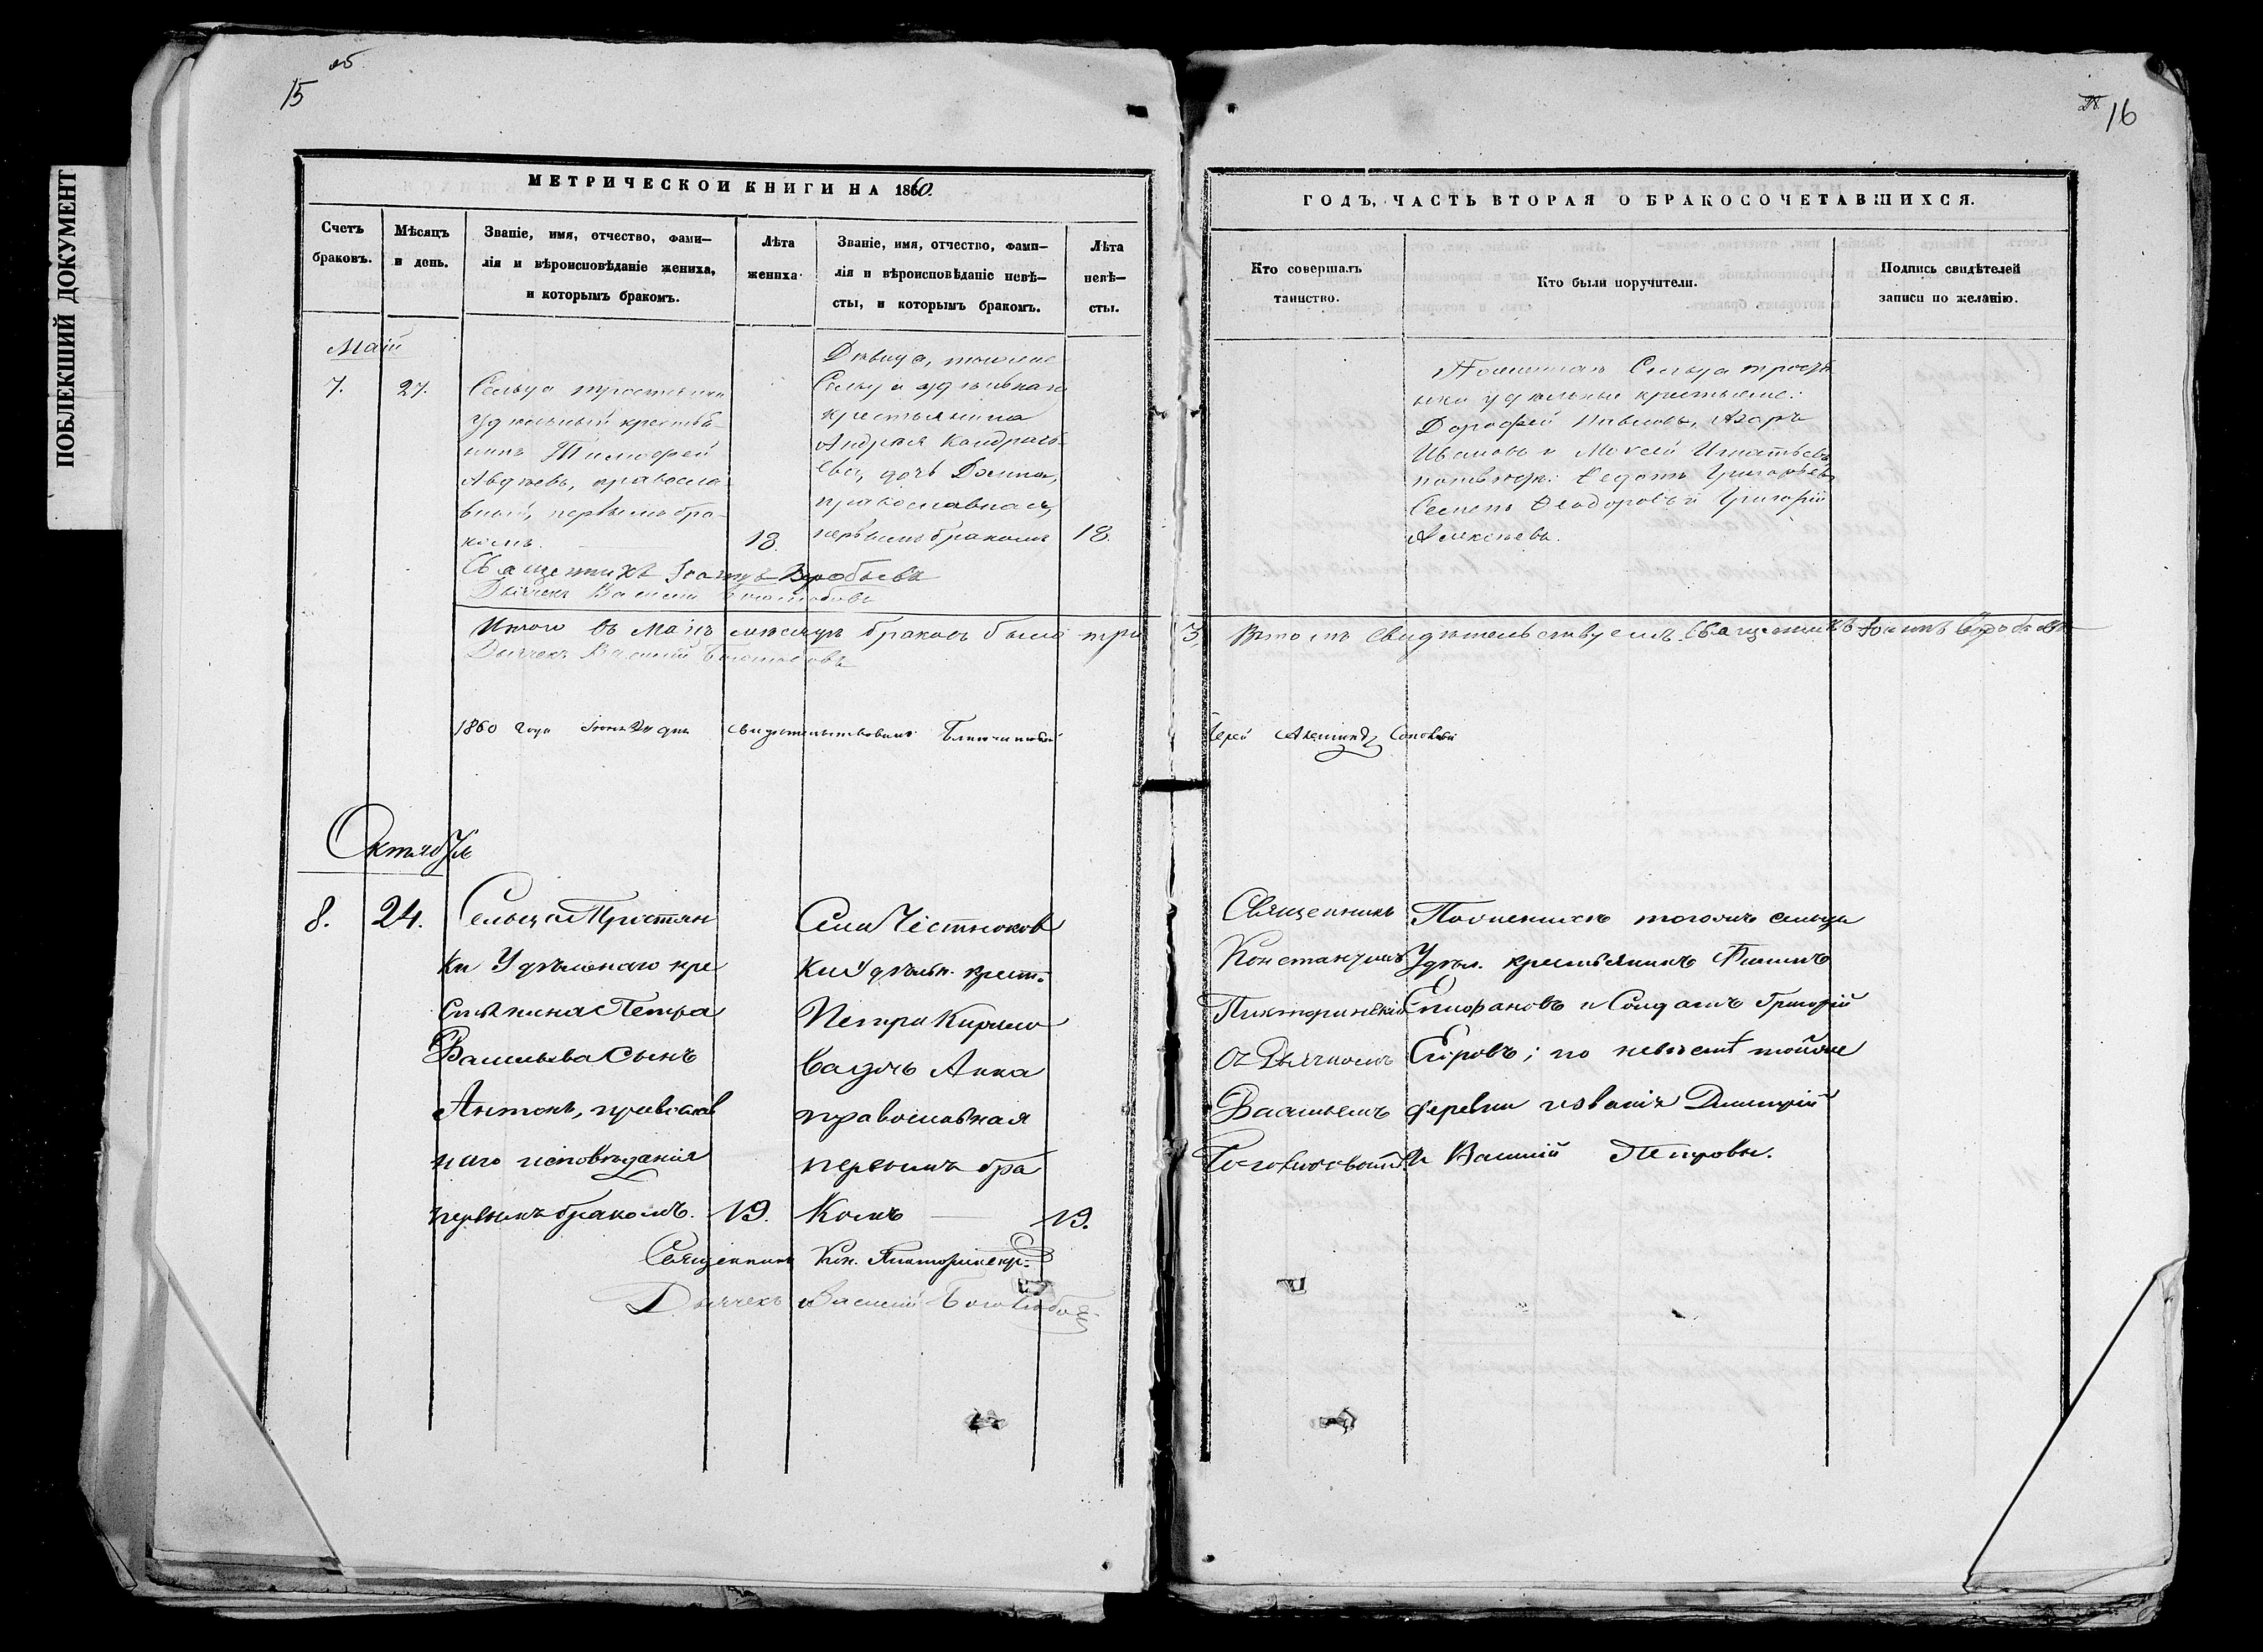 ПОБЛЕКШИЙ ДОКУМЕНТ
15
об
МЕТРИЧЕСКОЙ КНИГИ НА 1860.
Счетъ браковъ.
Мѣсяцъ и день.
Званіе, имя, отчество, фами-
лія и вѣроисповѣданіе жениха,
и которымъ бракомъ.
Лѣта
жениха.
Званіе, имя, отчество, фами-
лія и вѣроисповѣданіе невѣ-
сты, и которымъ бракомъ.
Лѣта
невѣ-
сты.
Маій
7.
27.
Сельца
удѣльный крестья-
нинъ Тимофей
Авдѣевъ, правосла
вный, первымъ бра-
комъ.
18.
Дѣвица, тогоже
Сельца удѣльнаго
крестьянина
Андрея Кондрать-
ева, дочь Домна,
православная,
первымъ бракомъ
18.
Священникъ Іоаннъ Воробьевъ
Дьячекъ Василій Боголюбовъ
Итого въ Маіѣ мѣсяцѣ браковъ было три 3,
Дьячекъ Василій Боголюбовъ
1860 года дня свидѣтельствовалъ Благочинный
Октябрь
8.
24.
Сельца Тростян
ки Удѣльнаго кре
стьянина Петра
Васильева сынъ
Антонъ, православ
наго исповѣданія
первымъ бракомъ.
19.
Села Чѣстноков
ки Удѣльн. крест.
Петра Кирило
ва дочь Анна
православная
первымъ бра
комъ
19.
Священникъ Кон.
Дьячекъ Василій Боголюбовъ
16
ГОДЪ, ЧАСТЬ ВТОРАЯ О БРАКОСОЧЕТАВШИХСЯ.
Кто совершалъ
таинство.
Кто были поручители.
Подпись свидѣтелей
записи по желанію.
По женихѣ Сельца Тростян
ки удѣльные крестьяне:
Дорофей Павловъ, Азаръ
Ивановъ и Моисей Игнатьевъ
по невѣстѣ: Федотъ Григорьевъ
Семенъ Феодоровъ и Григорій
Алексѣевъ.
Въ томъ свидѣтельствуемъ Священникъ Іоаннъ Воробьевъ
Іерей Александръ
Священникъ
Константинъ
Пикторинскій
съ Дьячкомъ
Васильемъ
Боголюбовымъ.
По женихѣ тогоже сельца
Удѣл. крестьянинъ Филипъ
Епифановъ и Солдатъ Григорій
Егоровъ; по невѣстѣ тойже
деревни Дмитрій
и Василій Петровы.